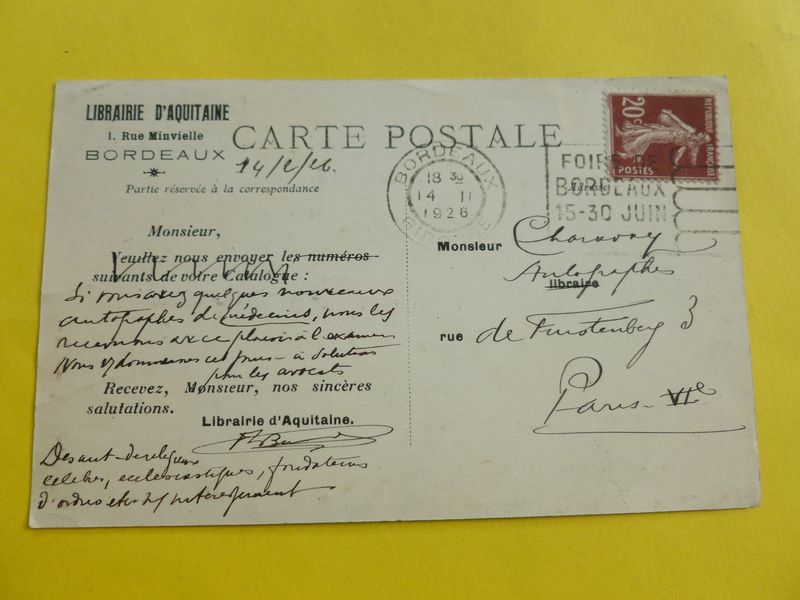 LIBRAIRIE D'AQUITAINE
1. Rue Minvielle
BORDEAUX
14/2/26.
Partie réservée à la correspondance
CARTE POSTALE
BORDEAUX
18 30
14 II
1926
FOIRE DE
BORDEAUX
15-30 JUIN
20c
REPUBLIQUE FRANÇAISE
POSTES
Adresse
Monsieur,
Veuillez nous envoyer les numéros
suivants de votre Catalogue :
Si vous avez quelques nouveaux
autographes de médecins, nous les
recevrons avec plaisir à l'examen
Nous
pour les avocats
Recevez, Monsieur, nos sincères
salutations.
Librairie d'Aquitaine.
célèbres, ecclésiastiques, fondateurs
d'ordres etc
Monsieur Charavay
Autographes
libraire
rue de Furstenberg 3
Paris-VIe